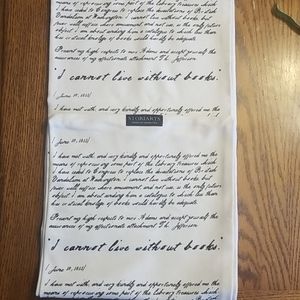 I have used to Congress to replace the devastations of British
Vandalism at Washington. I cannot live without books, but
fewer will suffice where amusement, and not use, is the only future
object. I am about sending him a catalogue to which less than
his critical knowledge of books would hardly be adequate.
Present my high respects to mrs Adams and accept yourself the
assurances of my affectionate attachment. Th. Jefferson
"I cannot live without books."
[June 10, 1815]
I have met with, and very kindly and opportunely offered me the
STORIARTS
[June 10, 1815]
I have met with, and very kindly and opportunely offered me the
means of reprocuring some part of the library treasures which
I have used to Congress to replace the devastations of British
Vandalism at Washington. I cannot live without books, but
fewer will suffice where amusement, and not use, is the only future
object. I am about sending him a catalogue to which less than
his critical knowledge of books would hardly be adequate.
Present my high respects to mrs Adams and accept yourself the
assurances of my affectionate attachment. Th. Jefferson
"I cannot live without books."
[June 10, 1815]
I have met with, and very kindly and opportunely offered me the
means of reprocuring some part of the library treasures which